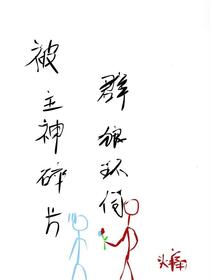 被主神碎片
群狼环伺